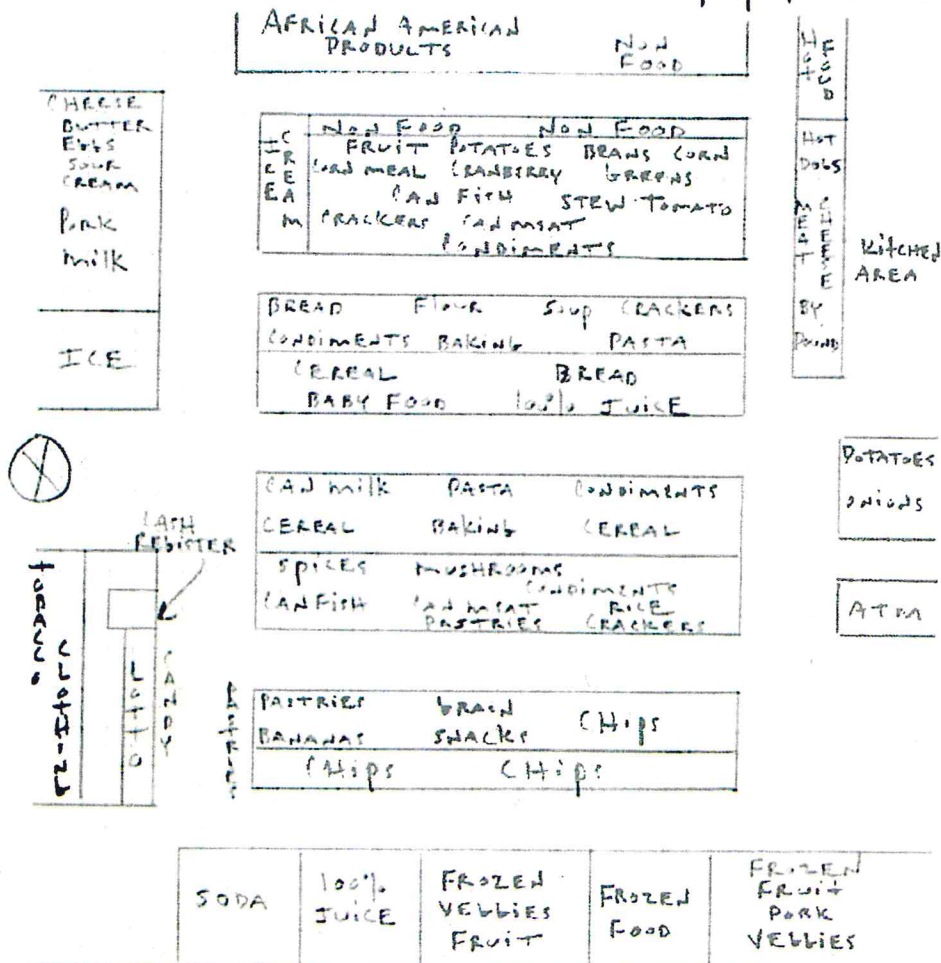 AFRICAN AMERICAN
PRODUCTS
NON
FOOD
HOT
FOOD
CHEESE
BUTTER
EGGS
SOUR
CREAM
PORK
MILK
ICE
ICE CREAM
NON FOOD NON FOOD
FRUIT POTATOES BEANS CORN
CORN MEAL CRANBERRY GREENS
CAN FISH STEW TOMATO
CRACKERS CAN MEAT
CONDIMENTS
HOT
DOGS
MEAT
CHEESE
BY
POUND
KITCHEN
AREA
BREAD FLOUR SOUP CRACKERS
CONDIMENTS BAKING PASTA
CEREAL BREAD
BABY FOOD 100% JUICE
CAN MILK PASTA CONDIMENTS
CEREAL BAKING CEREAL
SPICES MUSHROOMS
CONDIMENTS
CAN FISH CAN MEAT RICE
PASTRIES CRACKERS
POTATOES
ONIONS
ATM
CASH
REGISTER
TOBACCO
CLOTHING
LOTTO
CANDY
PASTRIES
PASTRIES GRAIN CHIPS
BANANAS SNACKS
CHIPS CHIPS
SODA
100%
JUICE
FROZEN
VEGGIES
FRUIT
FROZEN
FOOD
FROZEN
FRUIT
PORK
VEGGIES